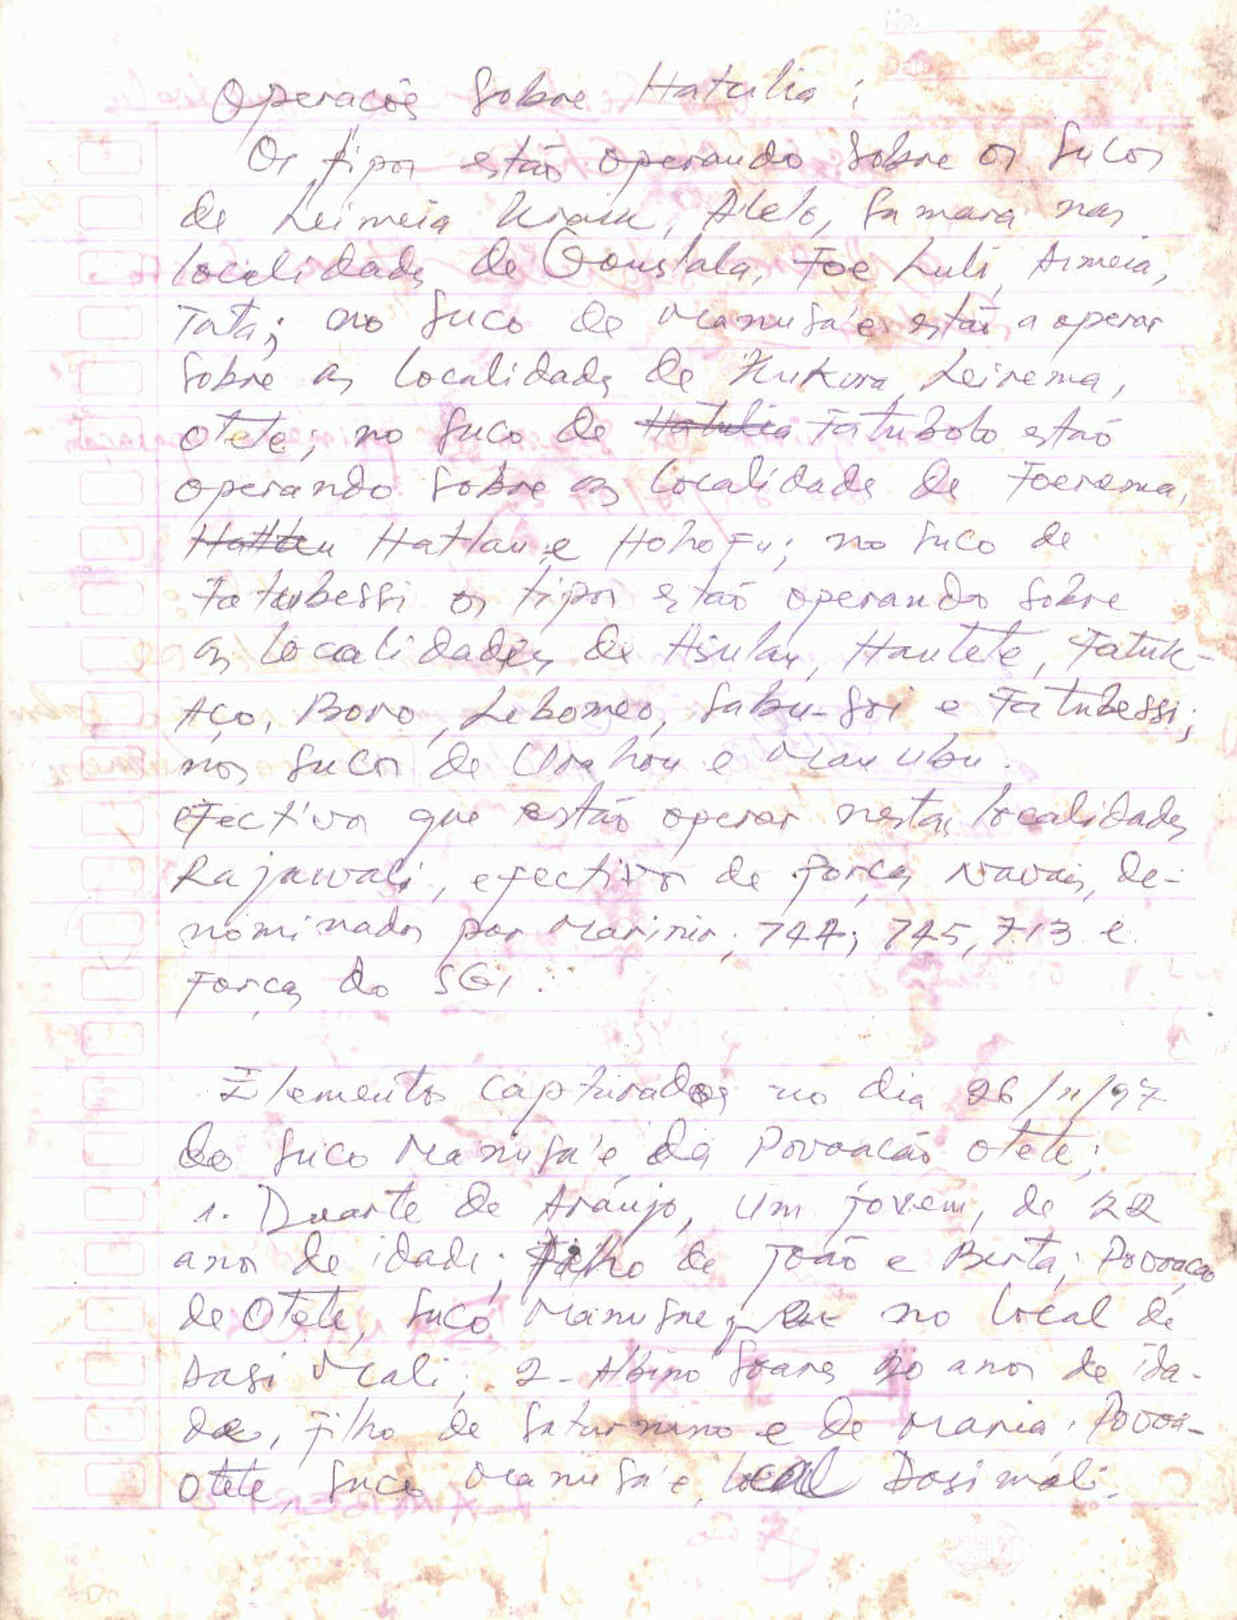 Operações Sobre Hatulia:
Os tipos estão operando Sobre os Sucos
de Leimeia Kraik, Ailelo, Samara nas
localidades de Gouslala, Foe Luli, Aimeia,
Tata; no Suco de Manusa'e estão a operar
Sobre as localidades de Kukora, Leirema,
Otete; no Suco de Hatulia Fatubolo estão
operando Sobre as localidades de Foerema,
Hatlau Hatlau e Hohofu; no Suco de
Fatubessi os tipos estão operando Sobre
as localidades de Asulau, Hautete, Fatuk-
Aço, Boro, Lebomeo, Sabu-Soi e Fatubessi;
nos Sucos de Urahou e Mau Ubu.
efectivos que estão operar nestas localidades
Rajawali, efectivos de forças Navais, de-
nominados por Marinir; 744; 745, 713 e
Forças do SGI.
Elementos capturados no dia 26/11/97
do Suco Manusa'e da Povoação Otete;
1. Duarte de Araújo, um jovem, de 22
anos de idade; Filho de João e Berta; Povoação
de Otete, Suco Manusae, no local de
Dasi Mali; 2- Albino Soares 20 anos de ida-
de, filho de Saturnino e de Maria, Povoa-
Otete, Suco Manusa'e, local Dosimali.